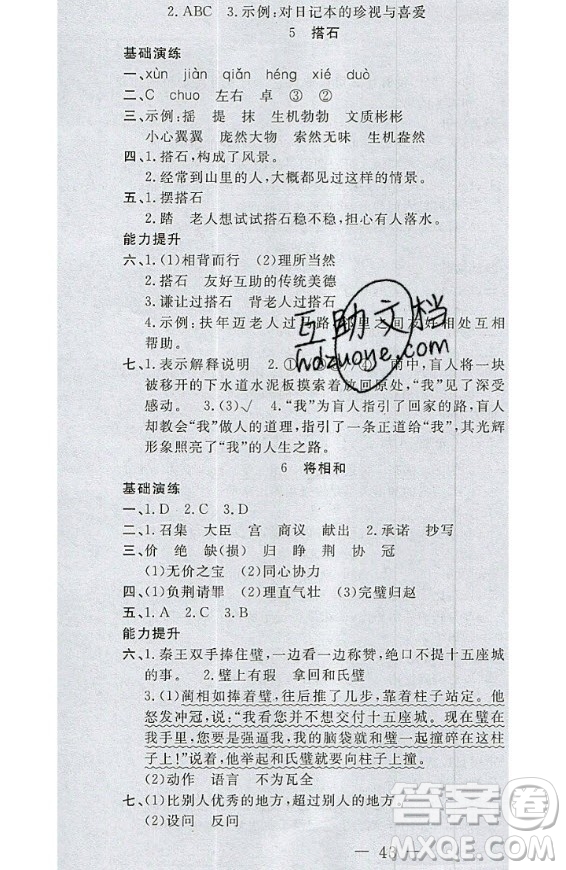 2.ABC 3.示例:对日记本的珍视与喜爱
5 搭石
基础演练
一、xùn jiàn qiǎn héng xié duò
二、C chuo 左右 卓 ③ ②
三、示例:摇 提 抹 生机勃勃 文质彬彬
小心翼翼 庞然大物 索然无味 生机盎然
四、1.搭石,构成了风景。
2.经常到山里的人,大概都见过这样的情景。
五、1.摆搭石
2.踏 老人想试试搭石稳不稳,担心有人落水。
能力提升
六、1.(1)相背而行 (2)理所当然
2.搭石 友好互助的传统美德
3.谦让过搭石 背老人过搭石
4.示例:扶年迈老人过马路,邻里之间友好相处互相
帮助。
七、1.表示解释说明 2.① 雨中,盲人将一块
被移开的下水道水泥板摸索着放回原处,“我”见了深受
感动。 3.(3)√ 4.“我”为盲人指引了回家的路,盲人
却教会“我”做人的道理,指引了一条正道给“我”,其光辉
形象照亮了“我”的人生之路。
6 将相和
基础演练
一、1.D 2.C 3.D
二、1.召集 大臣 宫 商议 献出 2.承诺 抄写
三、价 绝 缺(损) 归 睁 荆 协 冠
(1)无价之宝 (2)同心协力
四、(1)负荆请罪 (2)理直气壮 (3)完璧归赵
五、1.A 2.C 3.B
能力提升
六、1.秦王双手捧住璧,一边看一边称赞,绝口不提十五座城
的事。 2.璧上有瑕 拿回和氏璧
3.(1)蔺相如捧着璧,往后推了几步,靠着柱子站定。他
怒发冲冠,说:“我看您并不想交付十五座城。现在璧在
我手里,您要是强逼我,我的脑袋就和璧一起撞碎在这柱
子上!”说着,他举起和氏璧就要向柱子上撞。
(2)动作 语言 不为瓦全
七、(1)比别人优秀的地方,超过别人的地方
(2)设问 反问
互助文档
hdzuoye.com
答案圈
MXQE.COM